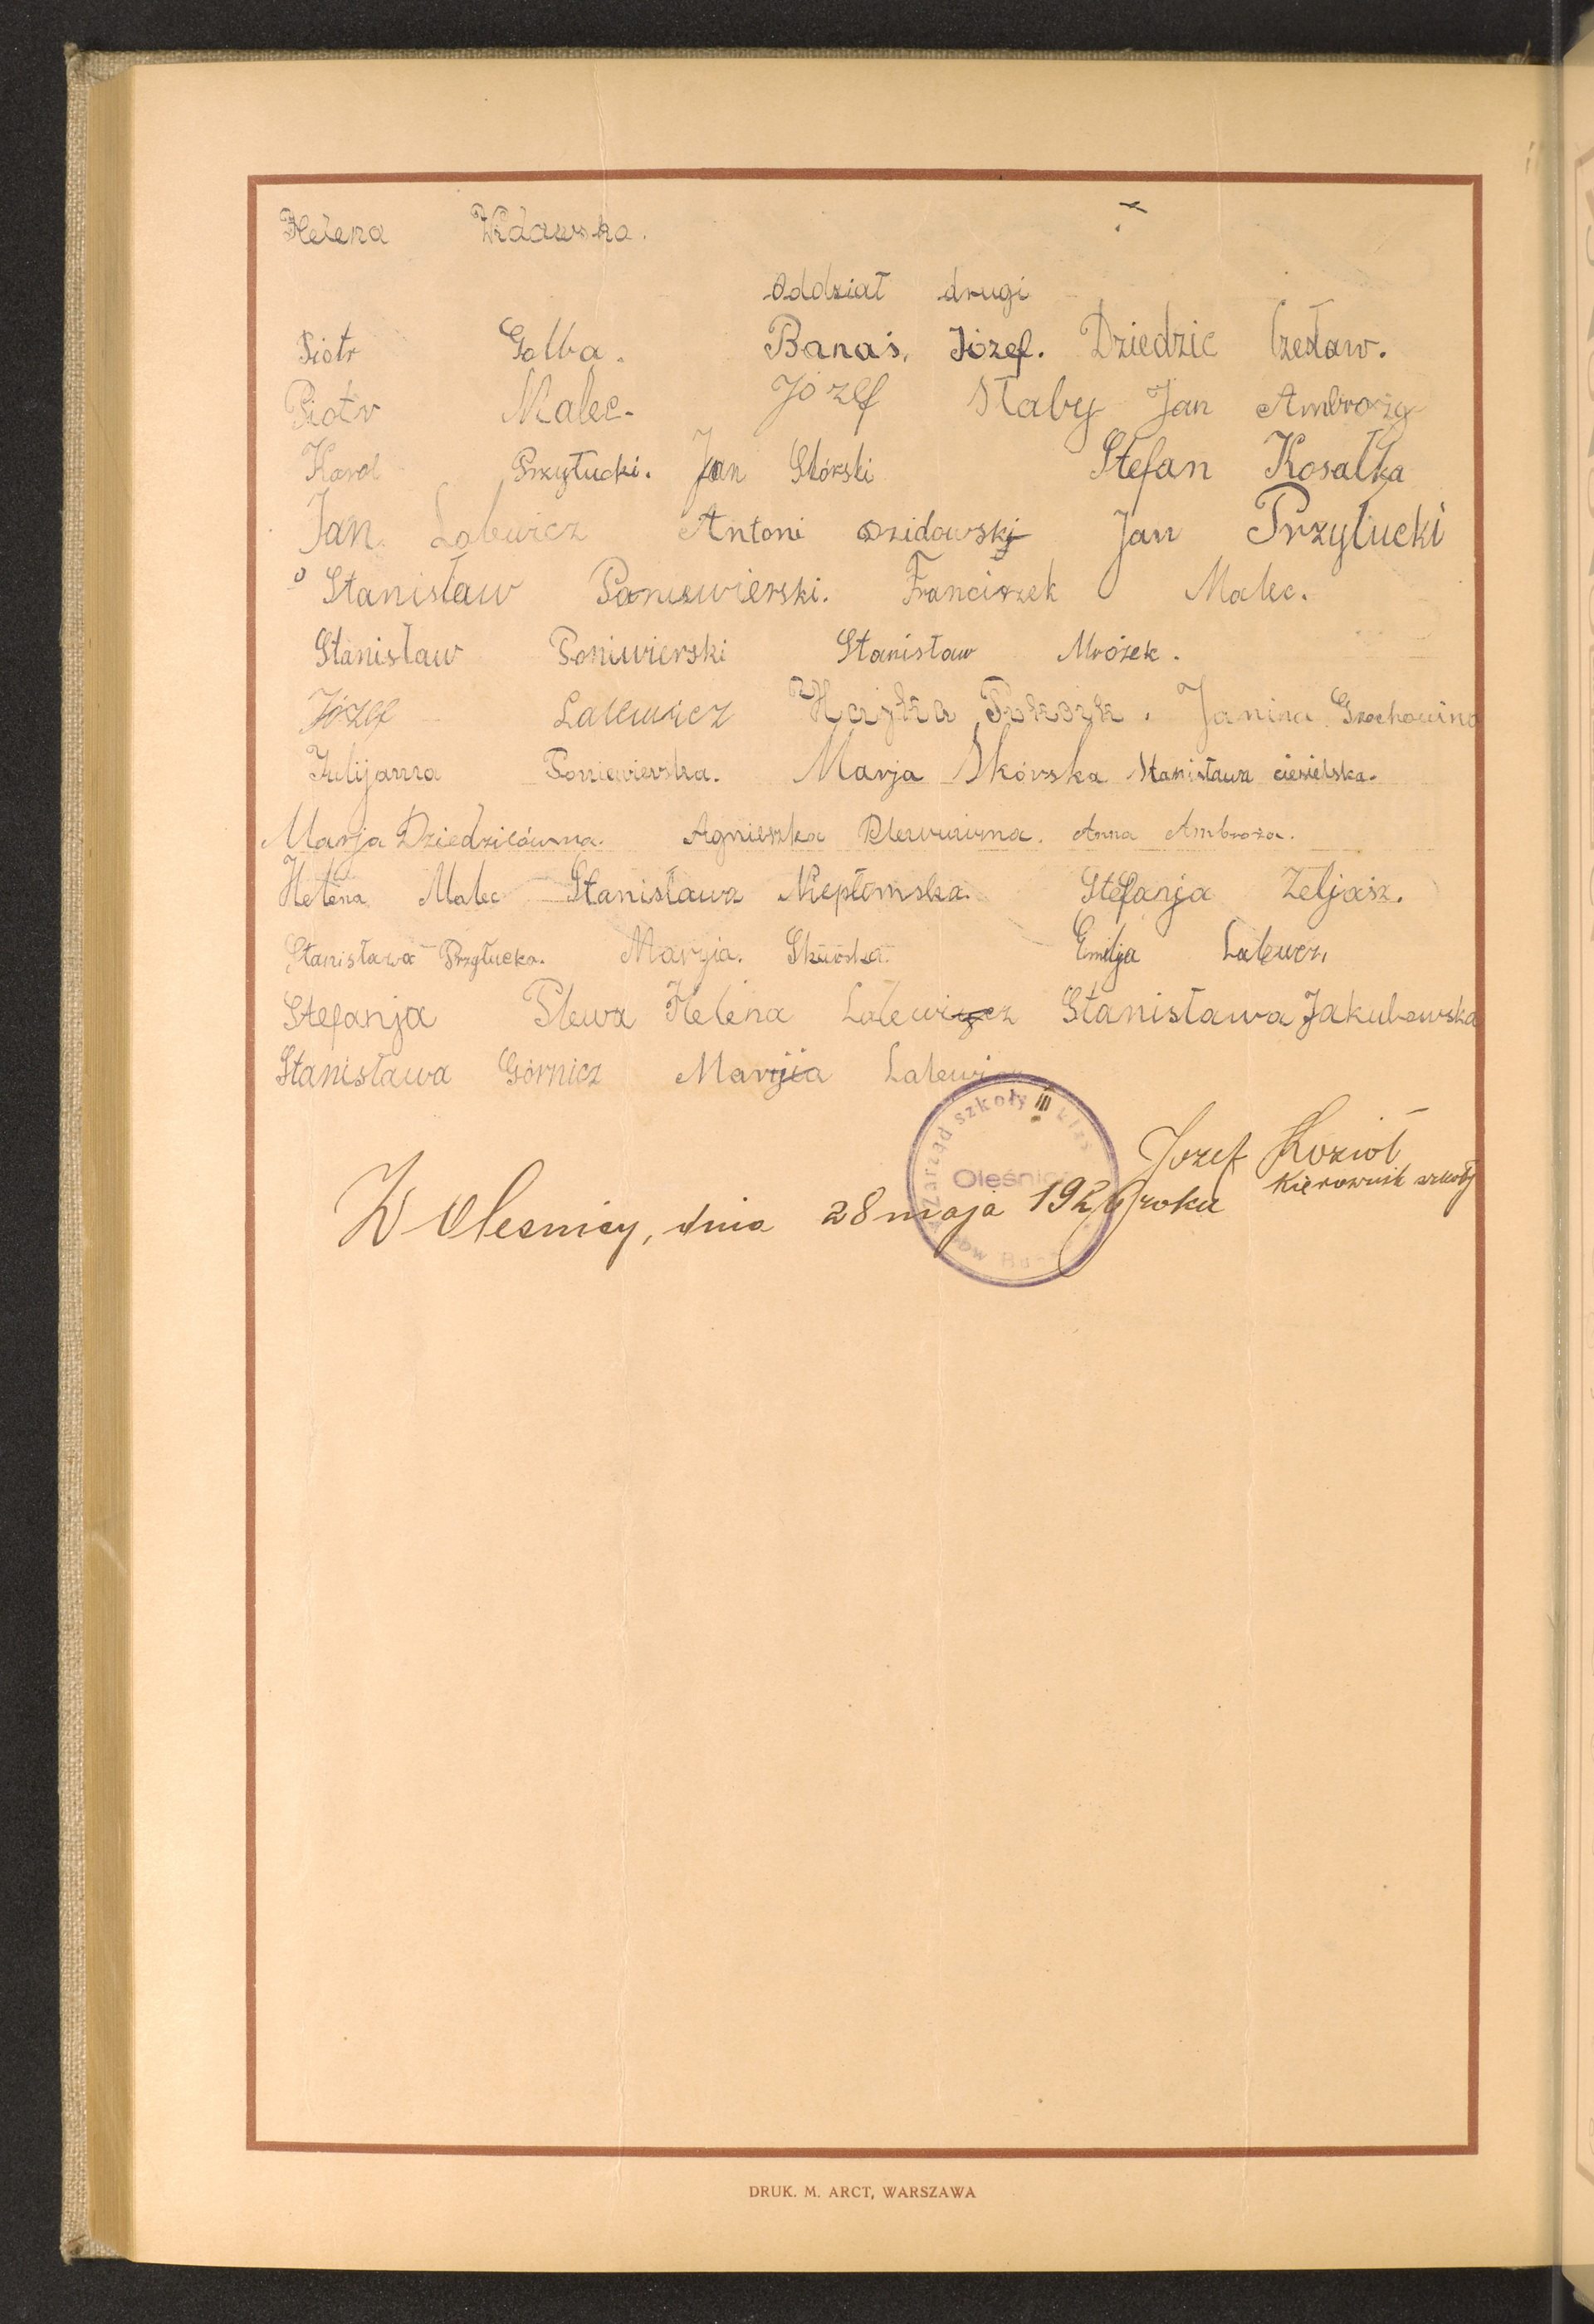 Helena Widawska.
Oddział drugi
Piotr Golba. Banaś, Józef. Dziedzic Czesław.
Piotr Malec. Józef Słaby Jan Ambroży
Karol Przyłucki. Jan Skórski Stefan Kosałka
Jan Lalewicz Antoni Dzidowski Jan Przyłucki
Stanisław Poniewierski. Franciszek Malec.
Stanisław Poniwierski Stanisław Mrózek.
Józef Lalewicz Janina Grochowina
Julijanna Poniewierska. Marja Skórska Stanisława ciesielska.
Marja Dziedzicówna. Agnieszka Anna Ambroża.
Helena Malec Stanisława Stefanja Zeljasz.
Stanisława Przyłucka. Maryia. Skurska. Emilja Lalewcz,
Stefanja Plewa Helena Lalewicz Stanisława Jakubowska
Stanisława Górnicz Maryjia Lalewicz
Zarząd szkoły III klas
Oleśnica
Józef Kozioł
Kierownik szkoły
W Olesnicy, dnia 28 maja 1926 roku
DRUK. M. ARCT, WARSZAWA